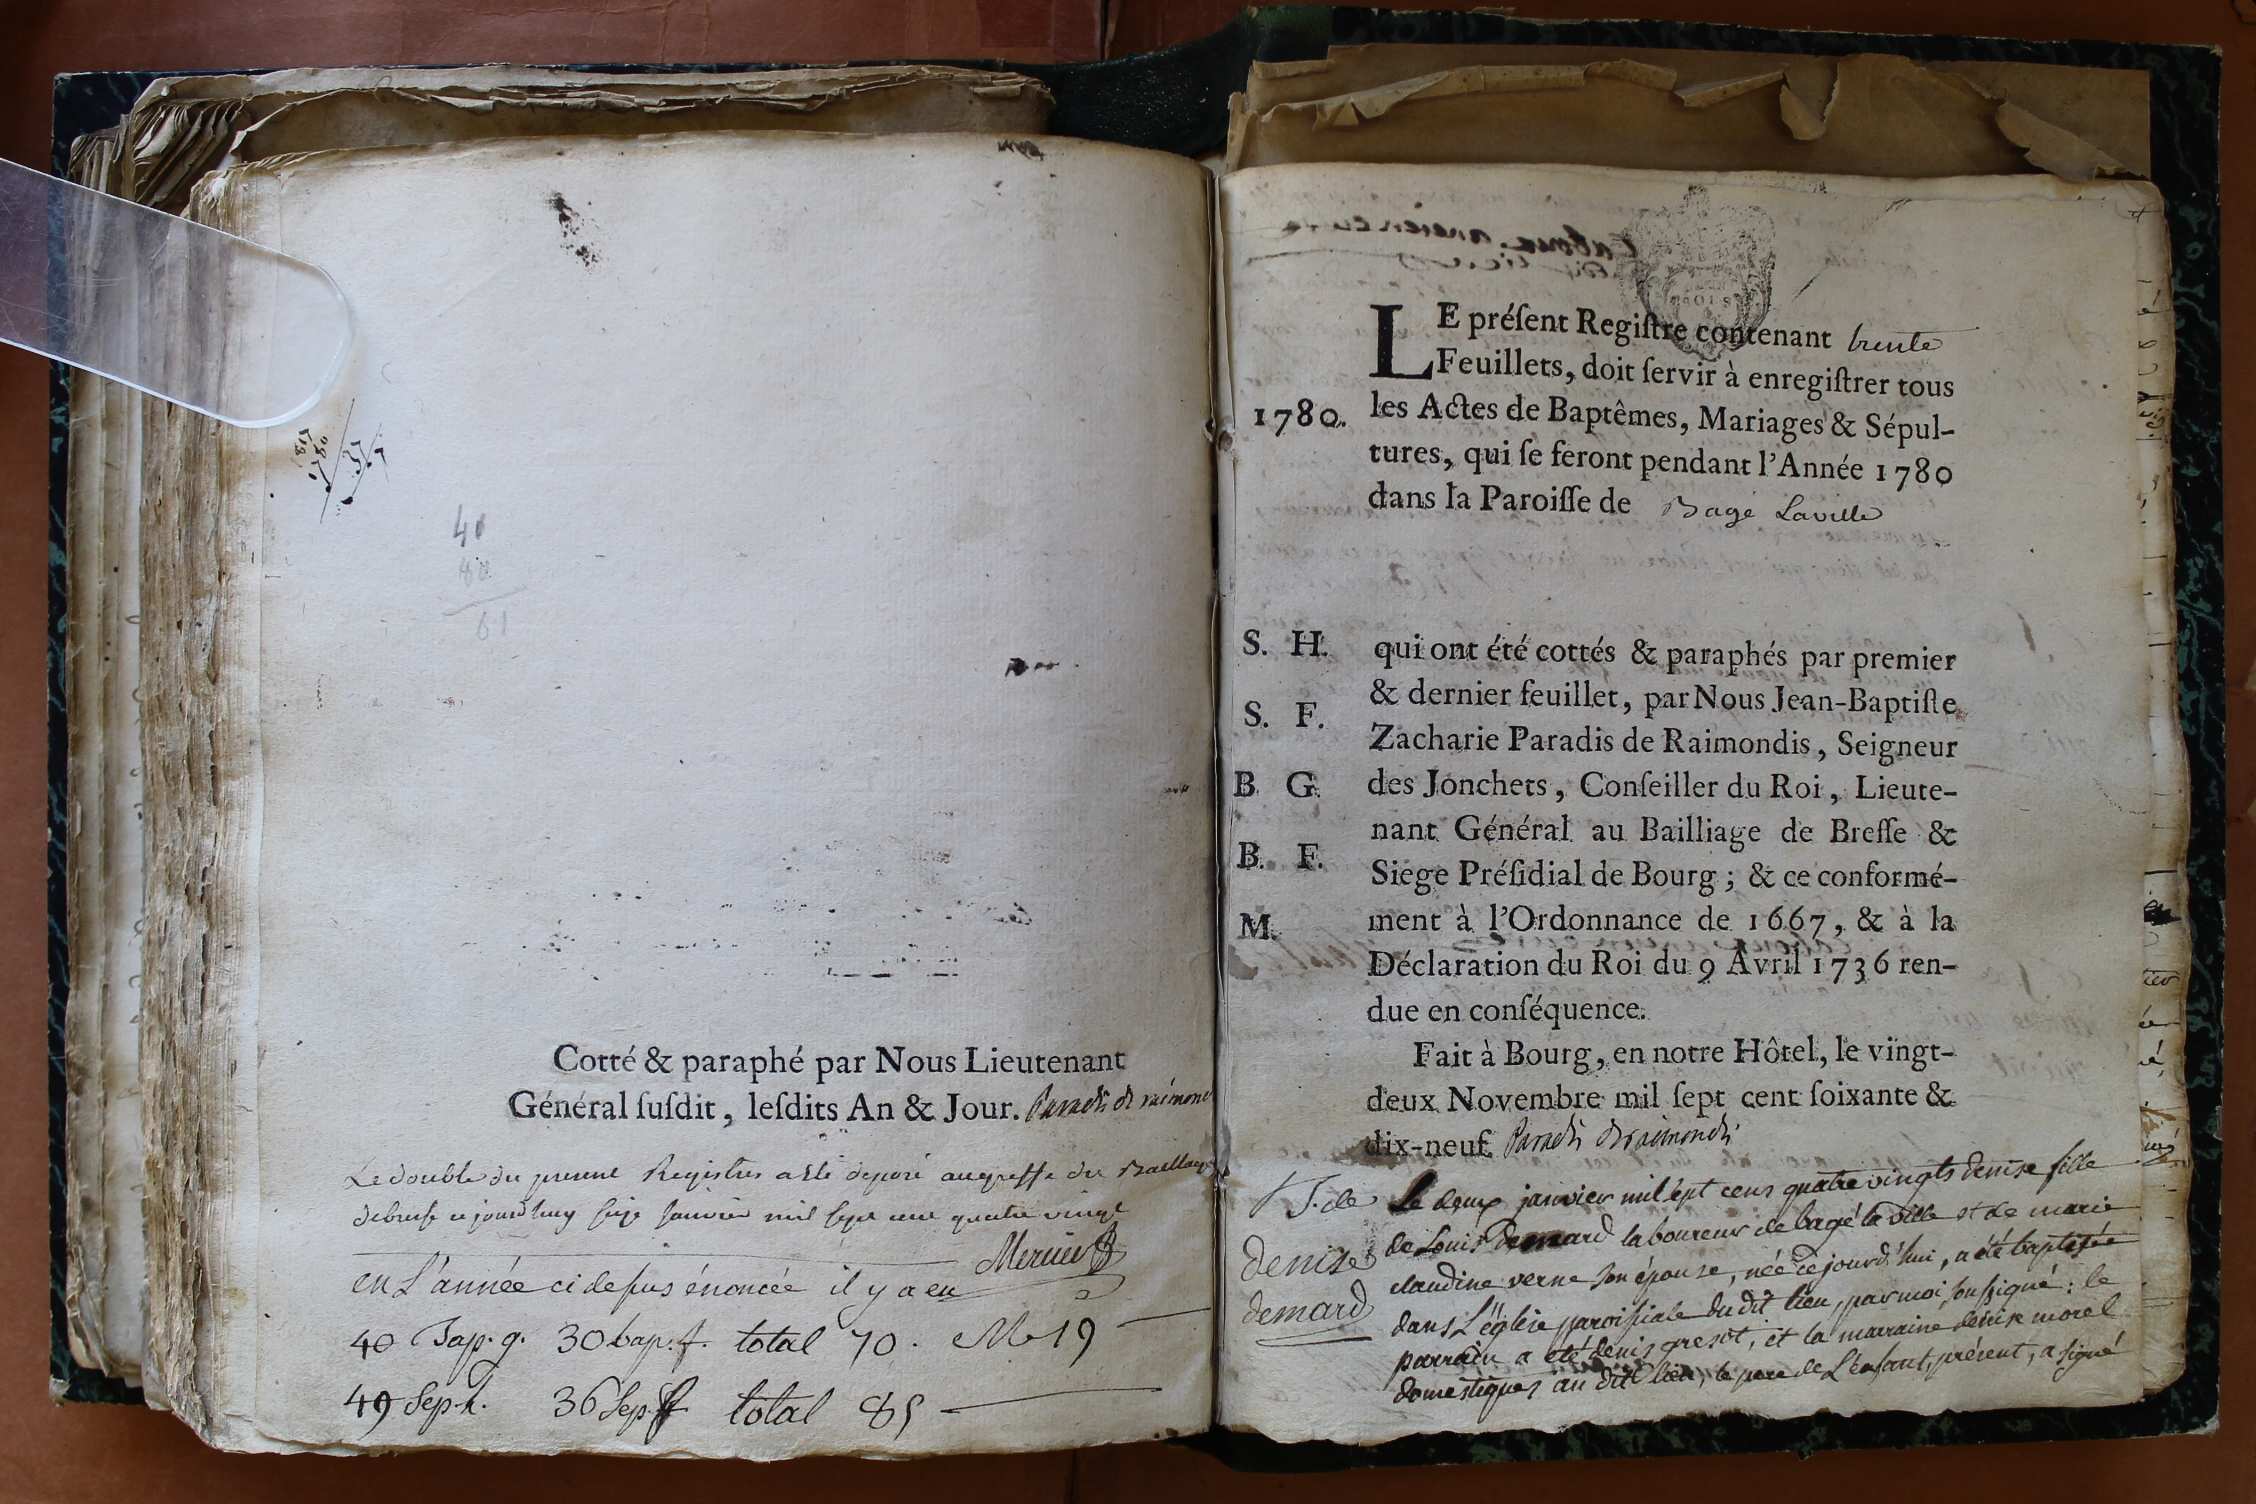 40
61
Cotté & paraphé par Nous Lieutenant
Général ſuſdit, leſdits An & Jour. Paradis de raimond
Le double du present Registres a été déposé au greffe du Bailliage
de bresse ce jourd'huy seize Janvier mil sept cent quatre vingt
Mercier
en L'année ci desus énoncée il y a eu
40 Bap. g. 30 bap. f. total 70. M 19
49 Sep. h. 36 Sep. f total 85
LE préſent Regiſtre contenant trente
Feuillets, doit ſervir à enregiſtrer tous
1780. les Actes de Baptêmes, Mariages & Sépul-
tures, qui ſe feront pendant l'Année 1780
dans la Paroiſſe de Bagé Laville
S. H. qui ont été cottés & paraphés par premier
& dernier feuillet, par Nous Jean-Baptiſte
S. F.
Zacharie Paradis de Raimondis, Seigneur
B G. des Jonchets, Conſeiller du Roi, Lieute-
nant Général au Bailliage de Breſſe &
B. F.
Siege Préſidial de Bourg; & ce conformé-
M. ment à l'Ordonnance de 1667, & à la
Déclaration du Roi du 9 Avril 1736 ren-
due en conſéquence.
Fait à Bourg, en notre Hôtel, le vingt-
deux Novembre mil ſept cent ſoixante &
dix-neuf. Paradis de raimondis
de Le deux janvier mil sept cens quatre vingts denise fille
denise de Louis demard laboureur de bagé la ville et de marie
claudine verne son épouse, née ce jourd'hui, a été baptisée
demard dans L'église paroissiale du dit lieu, par moi soussigné: le
parrain a été denis gresot, et la marraine denise morel
domestiques au dit lieu, le pere de L'enfant, présent, a signé